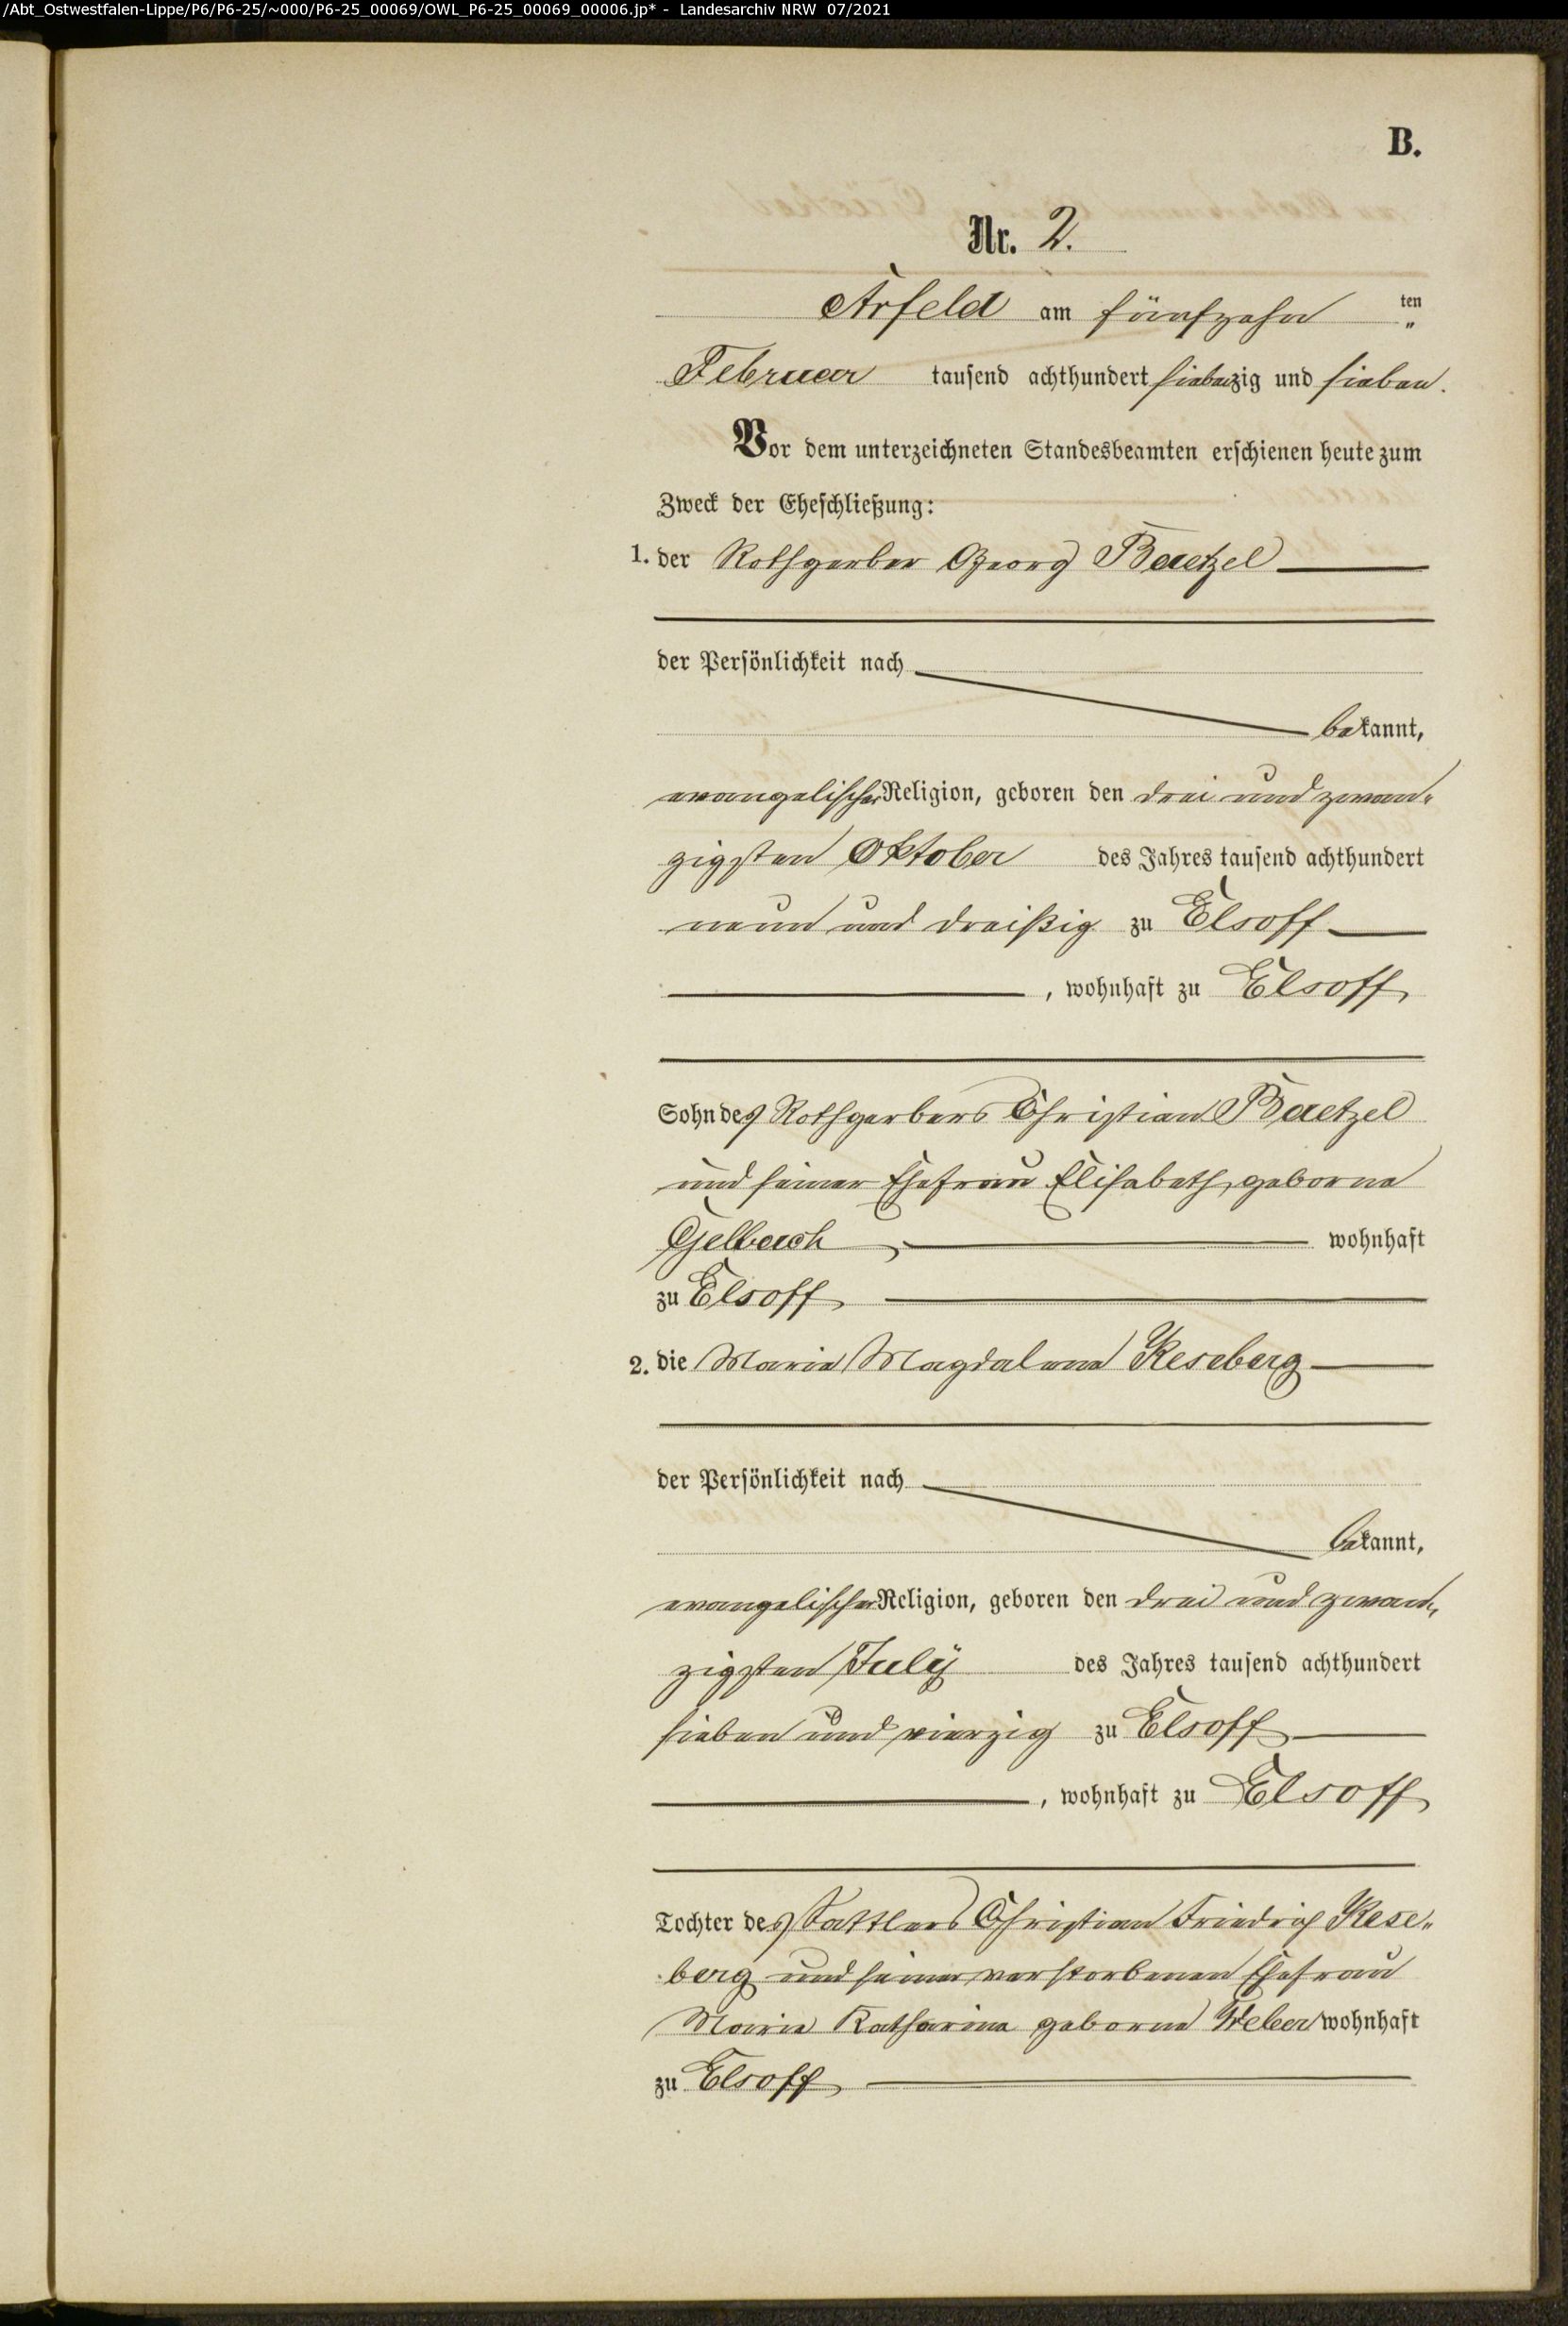 /Abt_Ostwestfalen-Lippe/P6/P6-25/~000/P6-25_00069/OWL_P6-25_00069_00006.jp* - Landesarchiv NRW 07/2021
B.
Nr. 2.
Arfeld am fünfzehn ten
Februar tausend achthundert siebenzig und sieben.
Vor dem unterzeichneten Standesbeamten erschienen heute zum
Zweck der Eheschließung:
1. der Rothgerber Georg Baetzel
der Persönlichkeit nach
bekannt,
evangelischer Religion, geboren den drei und zwan-
zigsten Oktober des Jahres tausend achthundert
neun und dreißig zu Elsoff
, wohnhaft zu Elsoff
Sohn des Rothgerbers Christian Baetzel
und seiner Ehefrau Elisabeth, geborne
Gelbach wohnhaft
zu Elsoff
2. die Maria Magdalena Reseberg
der Persönlichkeit nach
bekannt,
evangelischer Religion, geboren den drei und zwan-
zigsten July des Jahres tausend achthundert
sieben und vierzig zu Elsoff
, wohnhaft zu Elsoff
Tochter des Sattlers Christian Friedrich Rese-
berg und seiner verstorbenen Ehefrau
Maria Katharina geborne Weber wohnhaft
zu Elsoff